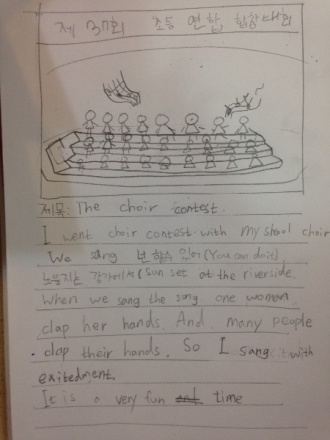 제 37회 초등 연합 합창대회
제목: The choir contest.
I went choir contest with my shool choir
We sang 넌 할 수 있어 (You can do it)
노을지는 강가에서 (Sun set at the riverside.
When we sang the song one women.
clap her hands. And. many people
clap their hands. So I sang with
exitedment.
It is a very fun time